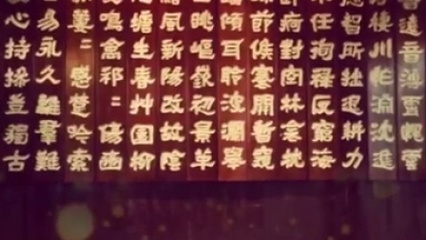 遠音薄霄愧雲
棲川怍淵沈進
智所拙退耕力
任徇祿反窮海
痾對空林衾枕
節候褰開暫窺
傾耳聆波瀾舉
眺嶇嶔初景革
風新陽改故陰
塘生春艸園柳
鳴禽祁〻傷豳
萋〻感楚吟索
易永久離羣難
心持操豈獨古